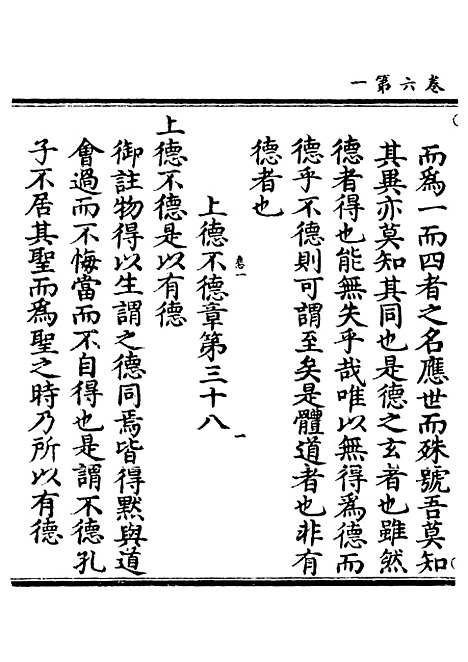 卷六第一
而為一而四者之名應世而殊號吾莫知
其異亦莫知其同也是德之玄者也雖然
德者得也能無失乎哉唯以無得為德而
德乎不德則可謂至矣是體道者也非有
德者也
上德不德章第三十八
上德不德是以有德
御註物得以生謂之德同焉皆得默與道
會過而不悔當而不自得也是謂不德孔
子不居其聖而為聖之時乃所以有德